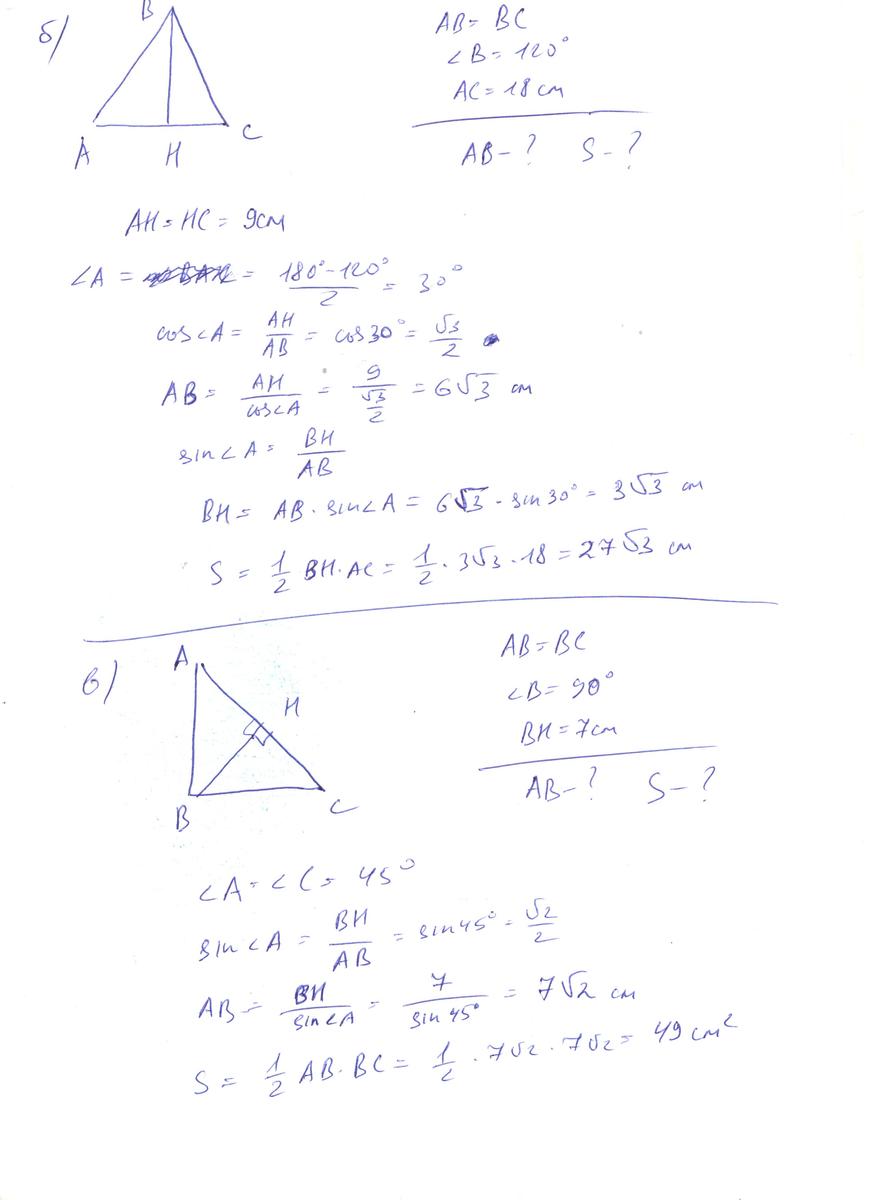 б)
B
A H C
AB = BC
∠B = 120°
AC = 18 см
AB - ? S - ?
AH = HC = 9см
∠A = = (180° - 120°)/2 = 30°
cos∠A = AH/AB = cos30° = √3/2
AB = AH/cos∠A = 9/(√3/2) = 6√3 см
sin∠A = BH/AB
BH = AB · sin∠A = 6√3 · sin30° = 3√3 см
S = 1/2 BH · AC = 1/2 · 3√3 · 18 = 27√3 см
в)
A
H
B C
AB = BC
∠B = 90°
BH = 7см
AB - ? S - ?
∠A = ∠C = 45°
sin∠A = BH/AB = sin45° = √2/2
AB = BH/sin∠A = 7/sin45° = 7√2 см
S = 1/2 AB · BC = 1/2 · 7√2 · 7√2 = 49 см²